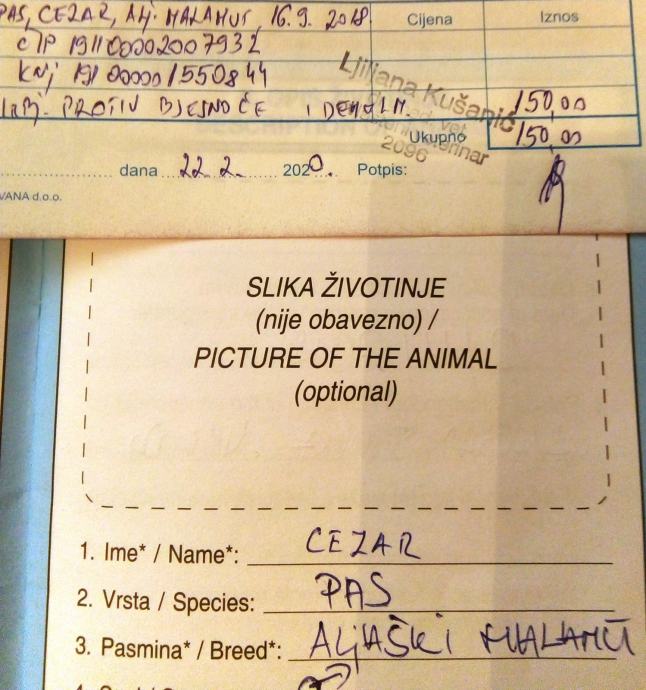 PAS, CEZAR, Alj. MALAMUT, 16.9. 2018. Cijena Iznos
ČIP 191100002007932
KNJ 191 00000 1550844
PROTIV BJESNOĆE I DEHELM. 150,00
Ljiljana Kušanić
Ukupno 150,00
2096
dana 22. 2. 2020. Potpis:
VANA d.o.o.
SLIKA ŽIVOTINJE
(nije obavezno) /
PICTURE OF THE ANIMAL
(optional)
1. Ime* / Name*: CEZAR
2. Vrsta / Species: PAS
3. Pasmina* / Breed*: ALJAŠKI MALAMUT